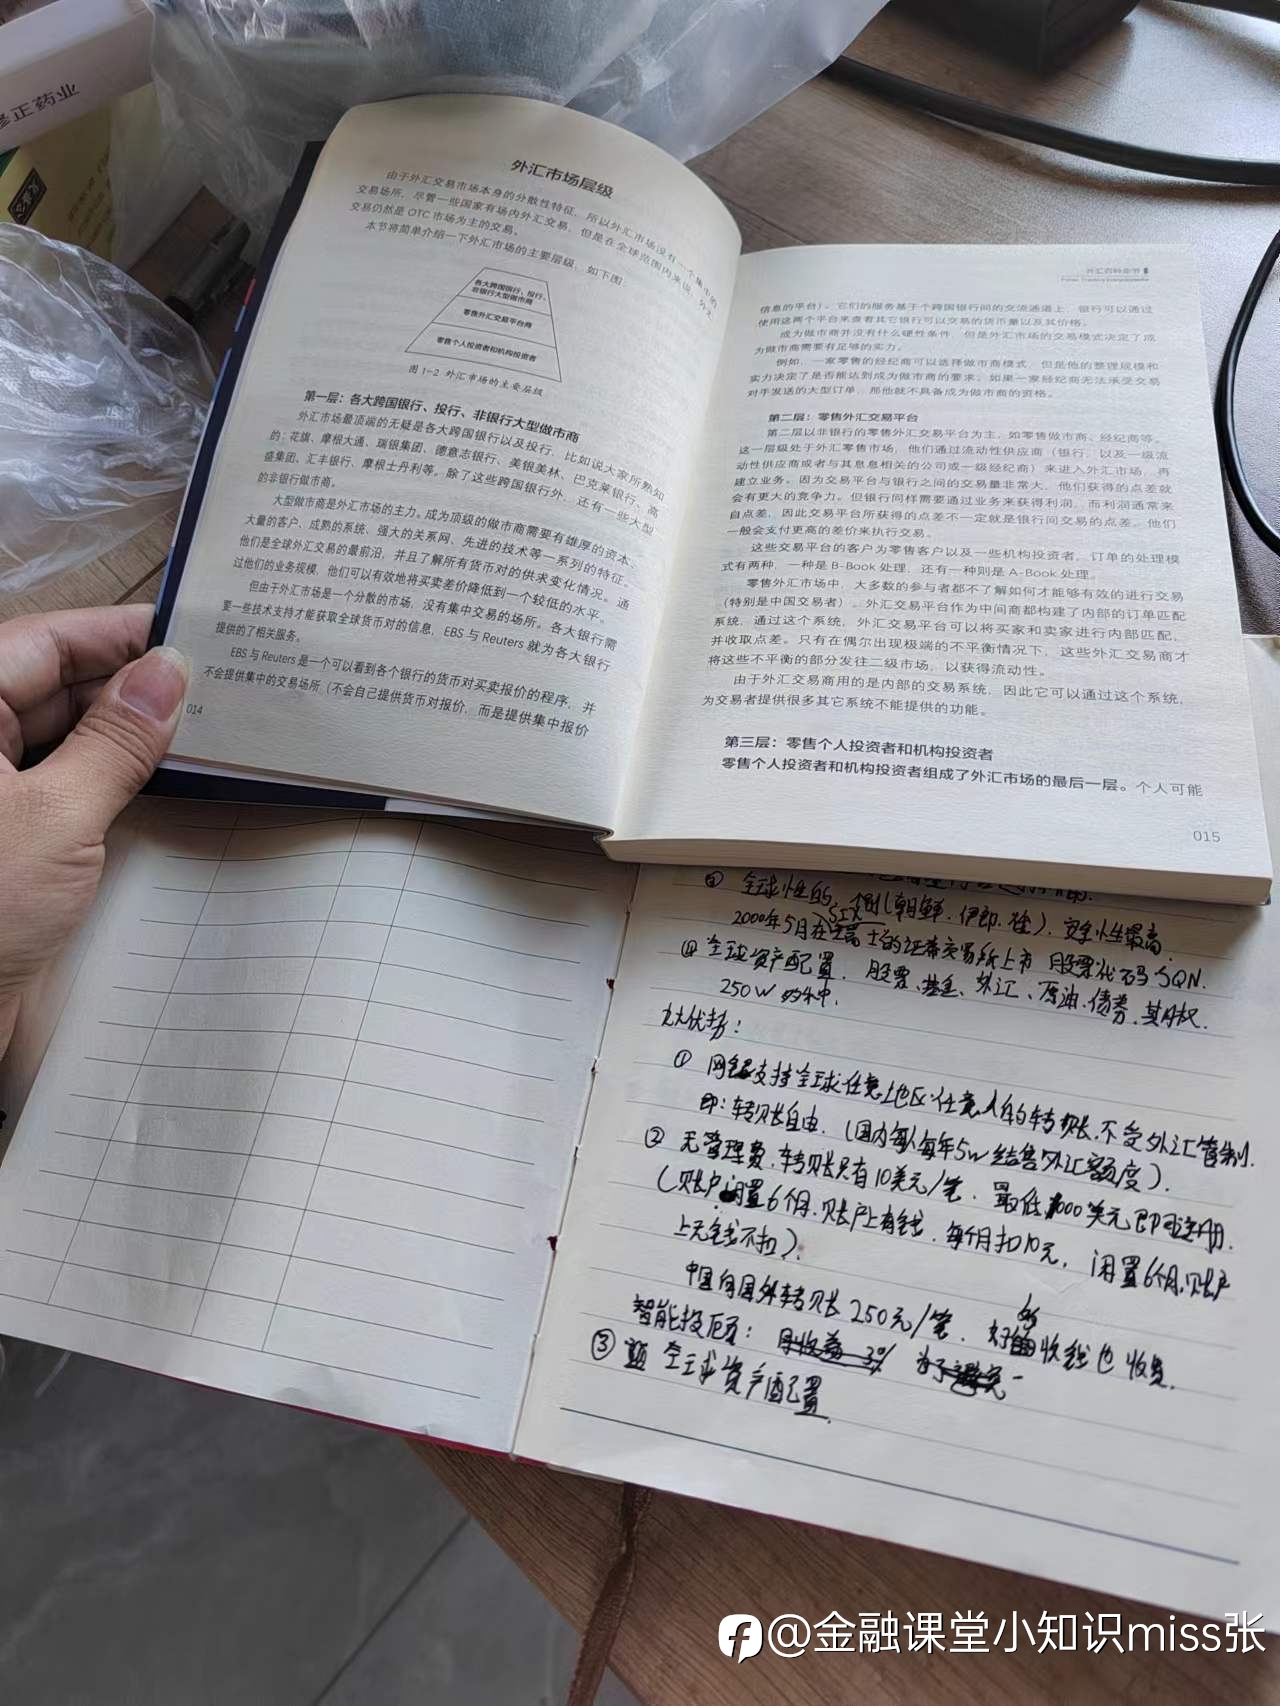 修正药业
外汇市场层级
由于外汇交易市场本身的分散性特征，所以外汇市场没有一个集中的
交易场所，尽管一些国家有场内外汇交易，但是在全球范围内来说，外汇
交易仍然是 OTC 市场为主的交易。
本节将简单介绍一下外汇市场的主要层级，如下图：
各大跨国银行、投行、
非银行大型做市商
零售外汇交易平台商
零售个人投资者和机构投资者
图 1-2 外汇市场的主要层级
第一层：各大跨国银行、投行、非银行大型做市商
外汇市场最顶端的无疑是各大跨国银行以及投行，比如说大家所熟知
的：花旗、摩根大通、瑞银集团、德意志银行、美银美林、巴克莱银行、高
盛集团、汇丰银行、摩根士丹利等。除了这些跨国银行外，还有一些大型
的非银行做市商。
大型做市商是外汇市场的主力。成为顶级的做市商需要有雄厚的资本、
大量的客户、成熟的系统、强大的关系网、先进的技术等一系列的特征。
他们是全球外汇交易的最前沿，并且了解所有货币对的供求变化情况。通
过他们的业务规模，他们可以有效地将买卖差价降低到一个较低的水平。
但由于外汇市场是一个分散的市场，没有集中交易的场所。各大银行需
要一些技术支持才能获取全球货币对的信息，EBS 与 Reuters 就为各大银行
提供的了相关服务。
EBS 与 Reuters 是一个可以看到各个银行的货币对买卖报价的程序，并
不会提供集中的交易场所（不会自己提供货币对报价，而是提供集中报价
014
外汇百科全书
信息的平台）。它们的服务基于个跨国银行间的交流通道上，银行可以通过
使用这两个平台来查看其它银行可以交易的货币量以及其价格。
成为做市商并没有什么硬性条件，但是外汇市场的交易模式决定了成
为做市商需要有足够的实力。
例如，一家零售的经纪商可以选择做市商模式，但是他的整理规模和
实力决定了是否能达到成为做市商的要求。如果一家经纪商无法承受交易
对手发送的大型订单，那他就不具备成为做市商的资格。
第二层：零售外汇交易平台
第二层以非银行的零售外汇交易平台为主，如零售做市商、经纪商等。
这一层级处于外汇零售市场，他们通过流动性供应商（银行，以及一级流
动性供应商或者与其息息相关的公司或一级经纪商）来进入外汇市场，再
建立业务。因为交易平台与银行之间的交易量非常大，他们获得的点差就
会有更大的竞争力。但银行同样需要通过业务来获得利润，而利润通常来
自点差，因此交易平台所获得的点差不一定就是银行间交易的点差。他们
一般会支付更高的差价来执行交易。
这些交易平台的客户为零售客户以及一些机构投资者，订单的处理模
式有两种，一种是 B-Book 处理，还有一种则是 A-Book 处理。
零售外汇市场中，大多数的参与者都不了解如何才能够有效的进行交易
（特别是中国交易者）。外汇交易平台作为中间商都构建了内部的订单匹配
系统，通过这个系统，外汇交易平台可以将买家和卖家进行内部匹配，
并收取点差。只有在偶尔出现极端的不平衡情况下，这些外汇交易商才
将这些不平衡的部分发往二级市场，以获得流动性。
由于外汇交易商用的是内部的交易系统，因此它可以通过这个系统，
为交易者提供很多其它系统不能提供的功能。
第三层：零售个人投资者和机构投资者
零售个人投资者和机构投资者组成了外汇市场的最后一层。个人可能
015
全球性的，(朝鲜．伊朗．)．安全性最高．
2000年5月在SIX瑞士的证券交易所上市 股票代码SQN．
④ 全球资产配置． 股票、基金、外汇、原油、债券、期权．
250W
九大优势：
① 网银支持全球任意地区任意人的转账．不受外汇管制．
即：转账自由．(国内每人每年5w结售外汇额度)．
② 无管理费．转账只有10美元/笔． 最低1000美元即可注册．
(账户闲置6个月．账户上有钱．每个月扣10元， 闲置6个月．账户
上无钱不扣)．
中国向国外转账250元/笔． 收钱也收费．
智能投顾： 月收益 3%
③ 全球资产配置．
@金融课堂小知识miss张